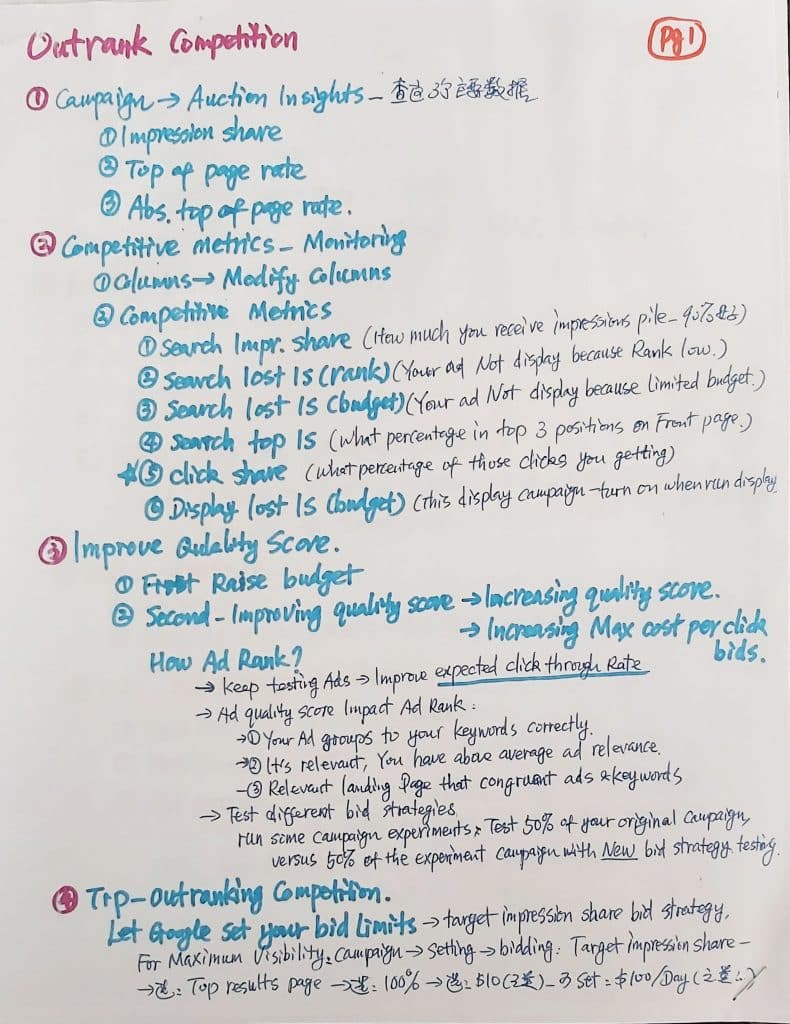 Outrank Competition
Pg 1
① Campaign → Auction Insights – 查
① Impression share
② Top of page rate
③ Abs. top of page rate.
② Competitive metrics – Monitoring
① Columns → Modify Columns
② Competitive Metrics
① Search Impr. share (How much you receive impressions pile – 90%)
② Search lost IS (rank) (Your ad Not display because Rank low.)
③ Search lost IS (budget) (Your ad Not display because limited budget.)
④ Search top IS (What percentage in top 3 positions on Front page.)
★⑤ click share (What percentage of those clicks you getting)
⑥ Display lost IS (budget) (this display campaign – turn on when run display
③ Improve Quality Score.
① First Raise budget
② Second – Improving quality score → Increasing quality score.
→ Increasing Max cost per click bids.
How Ad Rank?
→ Keep testing Ads → Improve expected click through Rate
→ Ad quality score Impact Ad Rank:
→① Your Ad groups to your keywords correctly.
→② It's relevant, You have above average ad relevance.
–③ Relevant landing Page that congruent ads & keywords
→ Test different bid strategies
run some campaign experiments: Test 50% of your original campaign,
versus 50% of the experiment campaign with New bid strategy testing.
④ Trp – outranking Competition.
Let Google set your bid limits → target impression share bid strategy.
For Maximum Visibility: campaign → setting → bidding: Target impression share –
→ 选: Top results page → 选: 100% → 选: $10 – Set: $100/Day